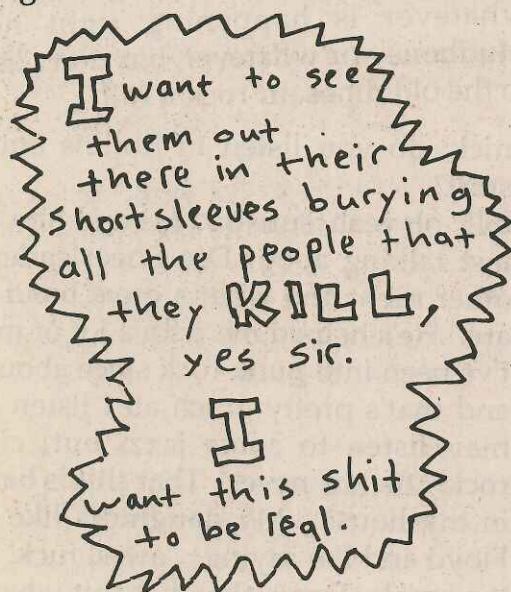 I want to see
them out
there in their
short sleeves burying
all the people that
they KILL,
yes sir.
I
want this shit
to be real.